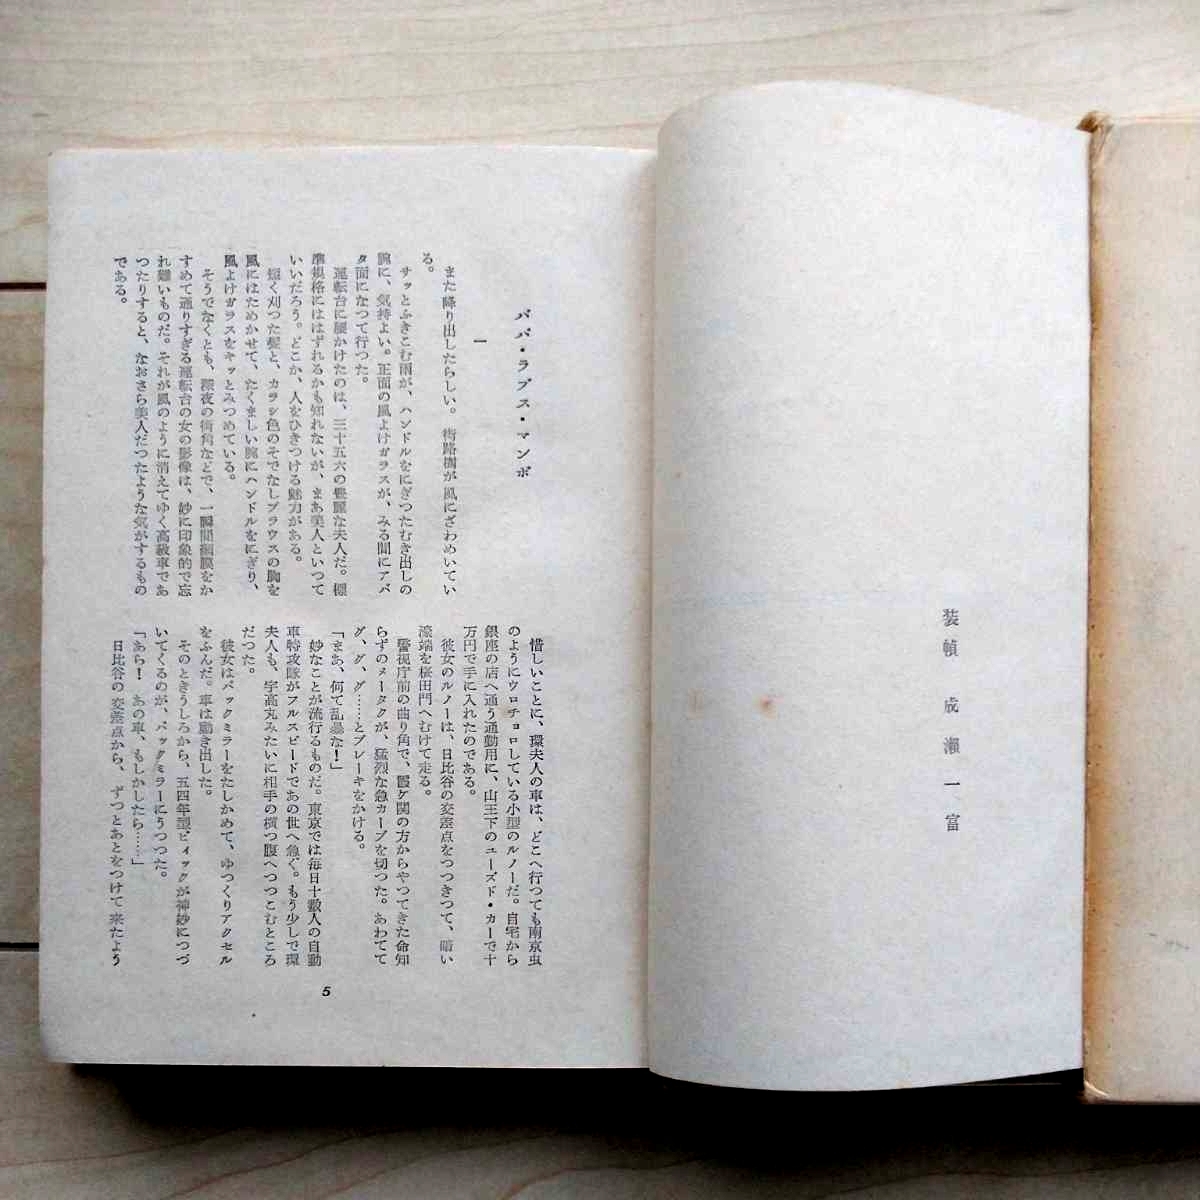 装幀　成瀬一富
パパ・ラブス・マンボ
一
また降り出したらしい。街路樹が風にざわめいてい
る。
サッとふきこむ雨が、ハンドルをにぎつたむき出しの
腕に、気持よい。正面の風よけガラスが、みる間にアバ
タ面になつて行つた。
運転台に腰かけたのは、三十五六の豊麗な夫人だ。標
準規格にははずれるかも知れないが、まあ美人といつて
いいだろう。どこか、人をひきつける魅力がある。
短く刈つた髪と、カラシ色のそでなしブラウスの胸を
風にはためかせて、たくましい腕にハンドルをにぎり、
風よけガラスをキッとみつめている。
そうでなくとも、深夜の街角などで、一瞬間網膜をか
すめて通りすぎる運転台の女の影像は、妙に印象的で忘
れ難いものだ。それが風のように消えてゆく高級車であ
つたりすると、なおさら美人だつたような気がするもの
である。
惜しいことに、環夫人の車は、どこへ行つても南京虫
のようにウロチョロしている小型のルノーだ。自宅から
銀座の店へ通う通勤用に、山王下のユーズド・カーで十
万円で手に入れたのである。
彼女のルノーは、日比谷の交差点をつつきつて、暗い
濠端を桜田門へむけて走る。
警視庁前の曲り角で、霞ケ関の方からやつてきた命知
らずのメータクが、猛烈な急カーブを切つた。あわてて
グ、グ、グ……とブレーキをかける。
「まあ、何て乱暴な！」
妙なことが流行るものだ。東京では毎日十数人の自動
車特攻隊がフルスピードであの世へ急ぐ。もう少しで環
夫人も、宇高丸みたいに相手の横つ腹へつつこむところ
だつた。
彼女はバックミラーをたしかめて、ゆつくりアクセル
をふんだ。車は動き出した。
そのときうしろから、五四年型ビィックが神妙につづ
いてくるのが、バックミラーにうつつた。
「あら！　あの車、もしかしたら……」
日比谷の交差点から、ずつとあとをつけて来たよう
5